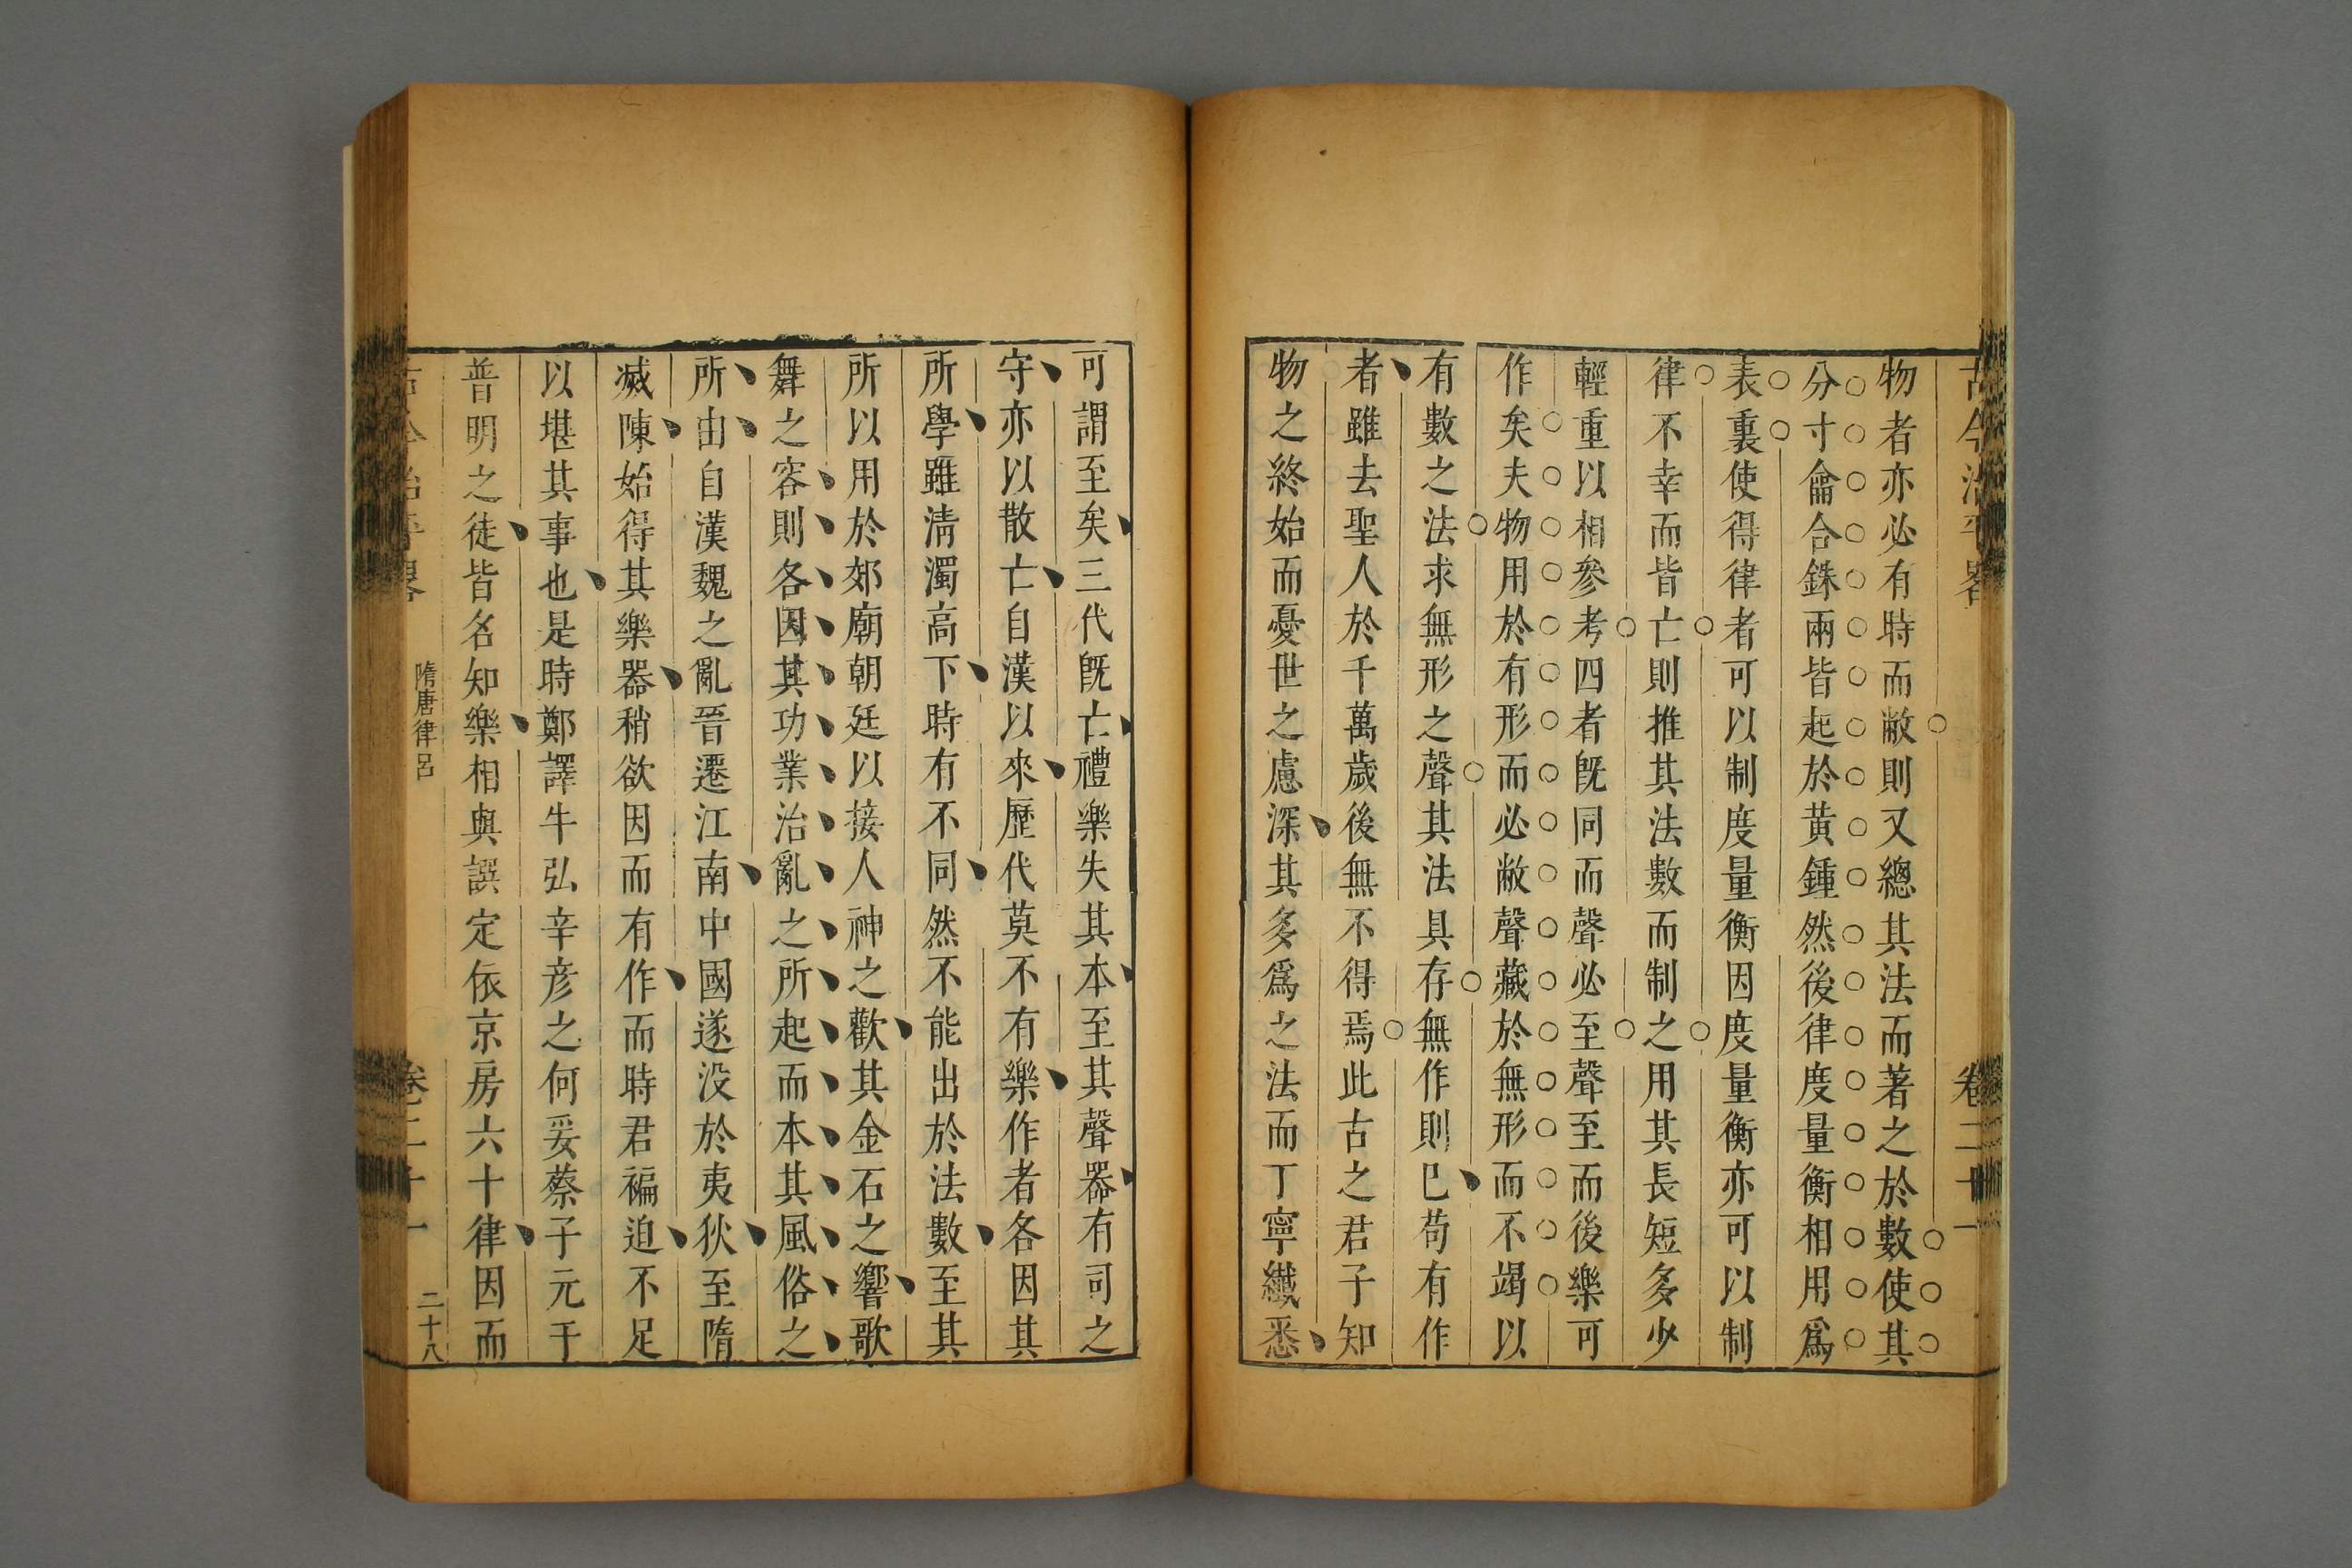 古今治平畧 卷二十一
物者亦必有時而敝則又總其法而著之於數使其
分寸龠合銖兩皆起於黃鍾然後律度量衡相用爲
表裏使得律者可以制度量衡因度量衡亦可以制
律不幸而皆亡則推其法數而制之用其長短多少
輕重以相參考四者旣同而聲必至聲至而後樂可
作矣夫物用於有形而必敝聲藏於無形而不竭以
有數之法求無形之聲其法具存無作則已苟有作
者雖去聖人於千萬歲後無不得焉此古之君子知
物之終始而憂世之慮深其多爲之法而丁寧纖悉
可謂至矣三代旣亡禮樂失其本至其聲器有司之
守亦以散亡自漢以來歷代莫不有樂作者各因其
所學雖淸濁高下時有不同然不能出於法數至其
所以用於郊廟朝廷以接人神之歡其金石之響歌
舞之容則各因其功業治亂之所起而本其風俗之
所由自漢魏之亂晉遷江南中國遂没於夷狄至隋
滅陳始得其樂器稍欲因而有作而時君褊迫不足
以堪其事也是時鄭譯牛弘辛彦之何妥蔡子元于
普明之徒皆名知樂相與譔定依京房六十律因而
古今治平畧 隋唐律呂 卷二十一 二十八